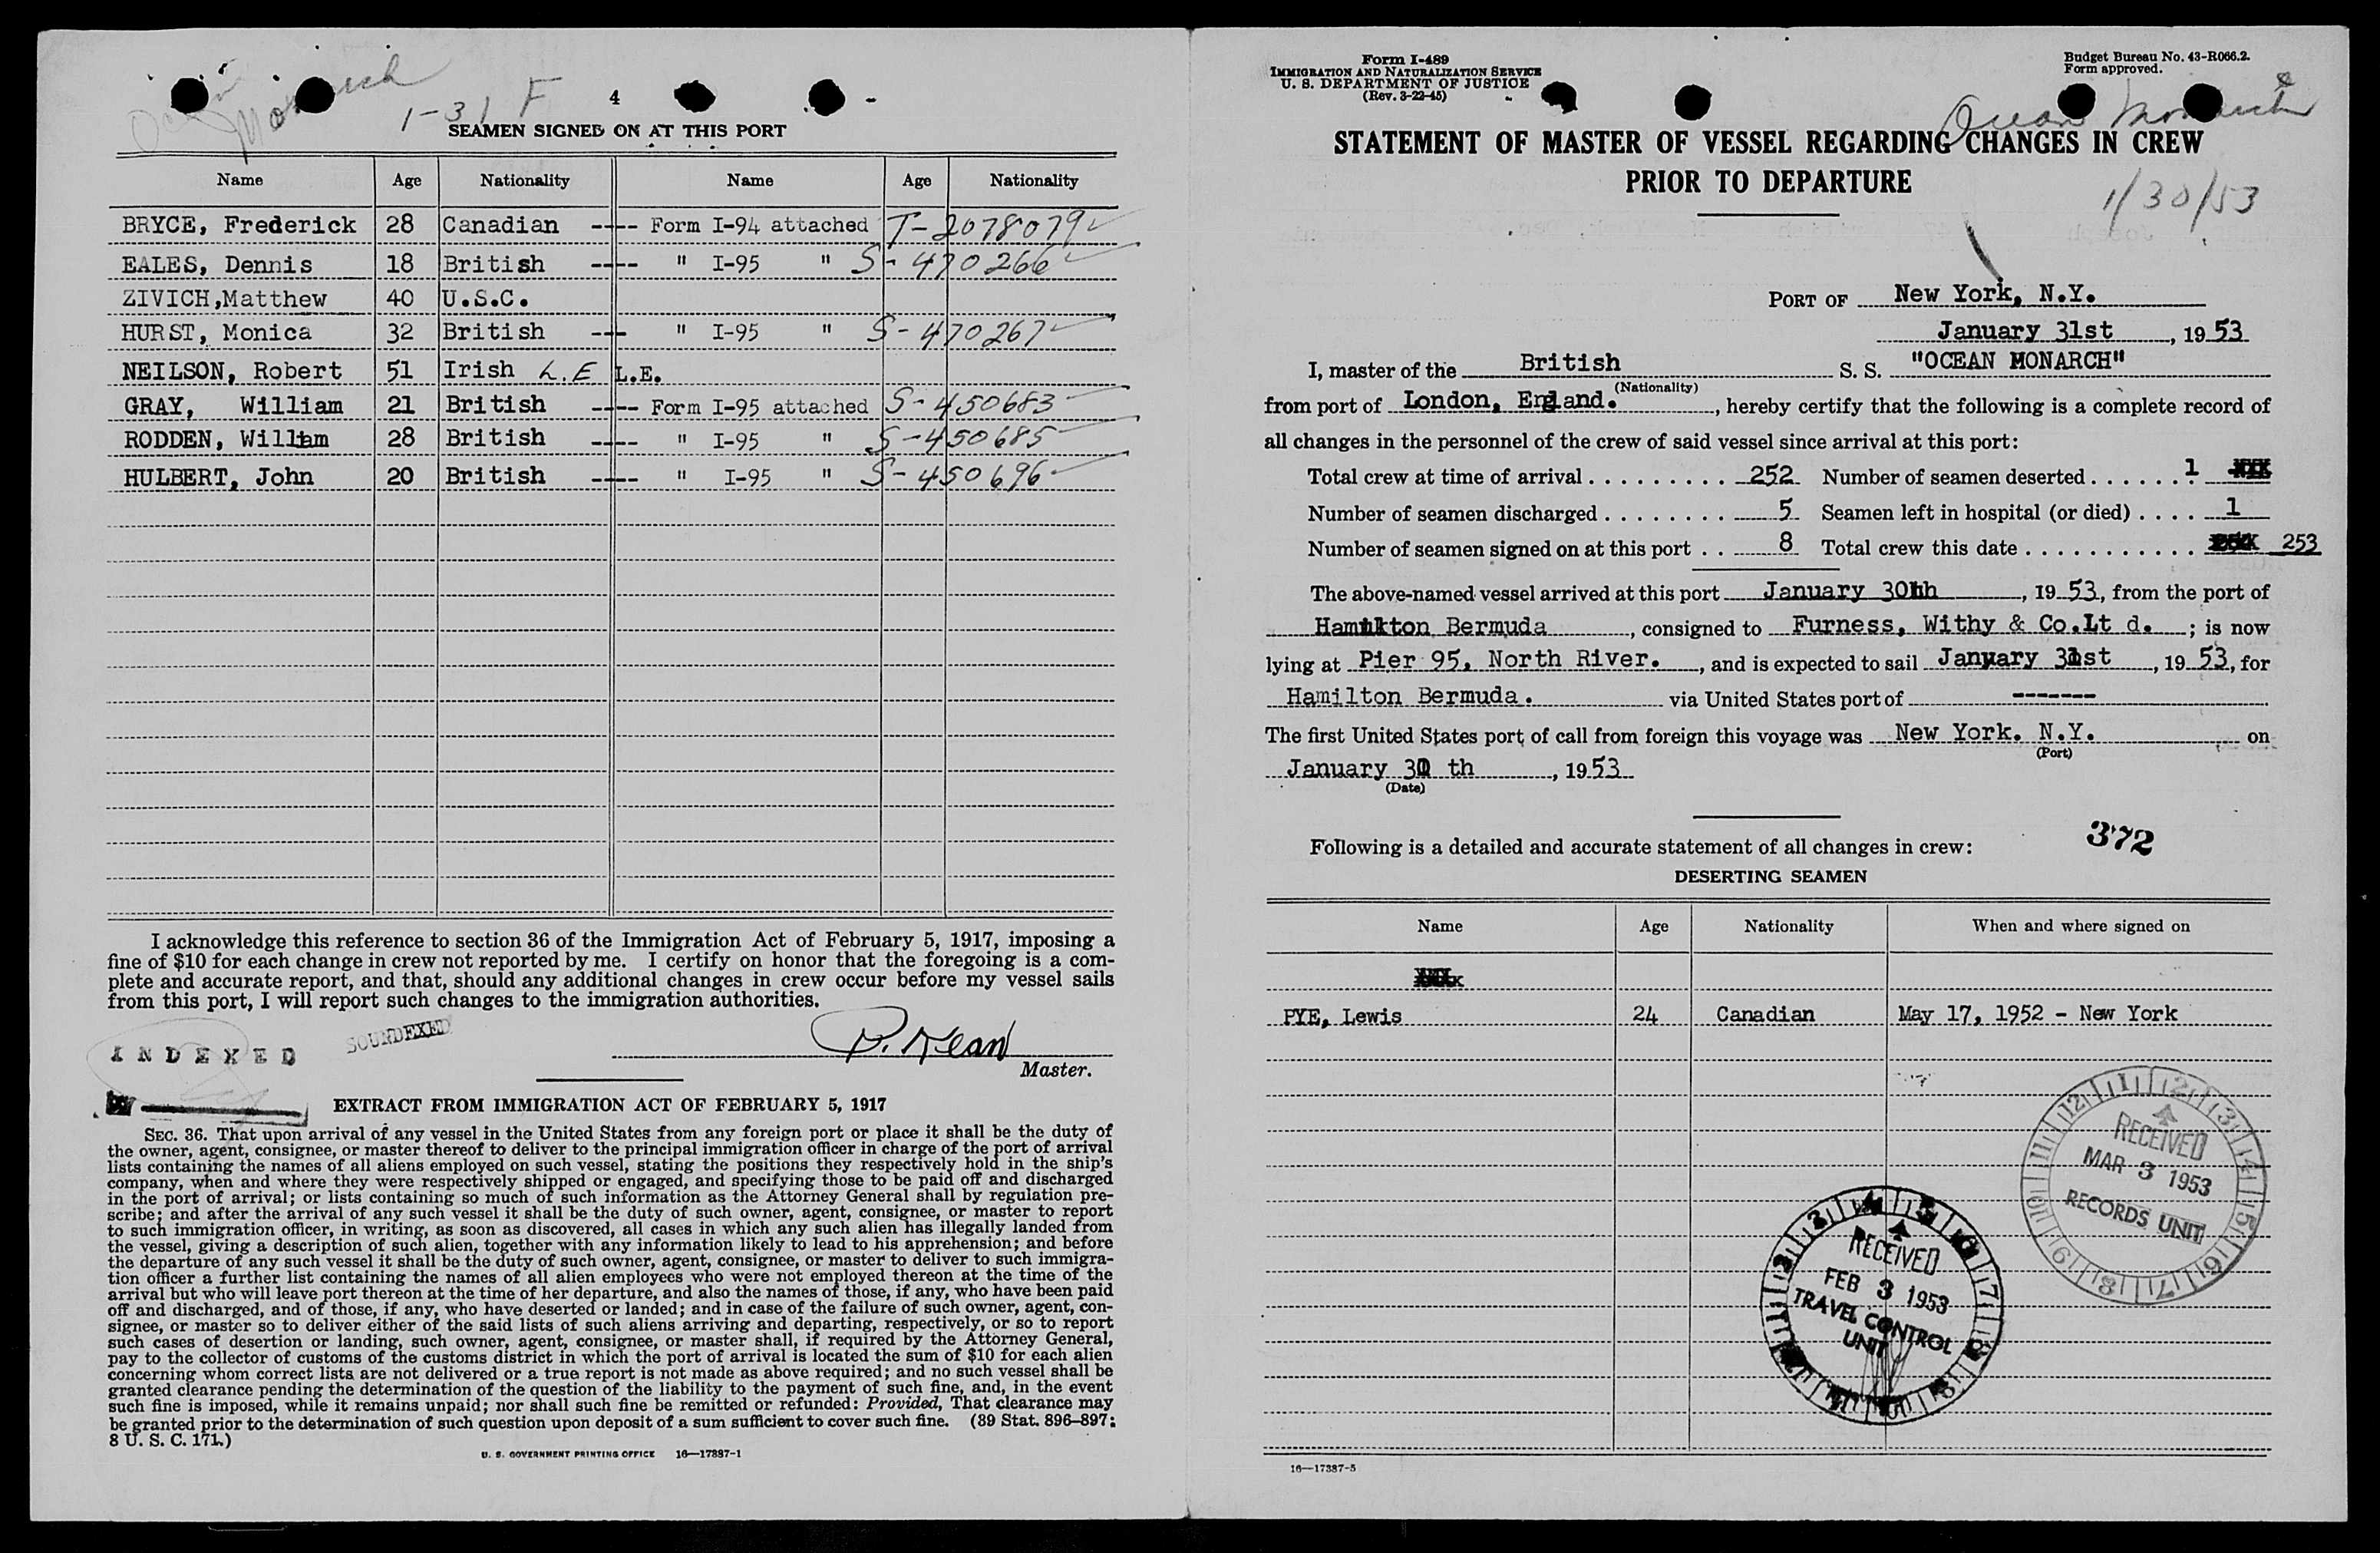 Ocean Monarch
1-31 F
4
SEAMEN SIGNED ON AT THIS PORT
Name Age Nationality Name Age Nationality
BRYCE, Frederick 28 Canadian ---- Form I-94 attached T-2078079
EALES, Dennis 18 British ---- " I-95 " S-470266
ZIVICH,Matthew 40 U.S.C.
HURST, Monica 32 British --- " I-95 " S-470267
NEILSON, Robert 51 Irish L.E L.E.
GRAY, William 21 British ---- Form I-95 attached S-450683
RODDEN, William 28 British ---- " I-95 " S-450685
HULBERT, John 20 British ---- " I-95 " S-450696
I acknowledge this reference to section 36 of the Immigration Act of February 5, 1917, imposing a
fine of $10 for each change in crew not reported by me. I certify on honor that the foregoing is a com-
plete and accurate report, and that, should any additional changes in crew occur before my vessel sails
from this port, I will report such changes to the immigration authorities.
INDEXED
SOUNDEXED
Master.
EXTRACT FROM IMMIGRATION ACT OF FEBRUARY 5, 1917
SEC. 36. That upon arrival of any vessel in the United States from any foreign port or place it shall be the duty of
the owner, agent, consignee, or master thereof to deliver to the principal immigration officer in charge of the port of arrival
lists containing the names of all aliens employed on such vessel, stating the positions they respectively hold in the ship's
company, when and where they were respectively shipped or engaged, and specifying those to be paid off and discharged
in the port of arrival; or lists containing so much of such information as the Attorney General shall by regulation pre-
scribe; and after the arrival of any such vessel it shall be the duty of such owner, agent, consignee, or master to report
to such immigration officer, in writing, as soon as discovered, all cases in which any such alien has illegally landed from
the vessel, giving a description of such alien, together with any information likely to lead to his apprehension; and before
the departure of any such vessel it shall be the duty of such owner, agent, consignee, or master to deliver to such immigra-
tion officer a further list containing the names of all alien employees who were not employed thereon at the time of the
arrival but who will leave port thereon at the time of her departure, and also the names of those, if any, who have been paid
off and discharged, and of those, if any, who have deserted or landed; and in case of the failure of such owner, agent, con-
signee, or master so to deliver either of the said lists of such aliens arriving and departing, respectively, or so to report
such cases of desertion or landing, such owner, agent, consignee, or master shall, if required by the Attorney General,
pay to the collector of customs of the customs district in which the port of arrival is located the sum of $10 for each alien
concerning whom correct lists are not delivered or a true report is not made as above required; and no such vessel shall be
granted clearance pending the determination of the question of the liability to the payment of such fine, and, in the event
such fine is imposed, while it remains unpaid; nor shall such fine be remitted or refunded: Provided, That clearance may
be granted prior to the determination of such question upon deposit of a sum sufficient to cover such fine. (39 Stat. 896–897;
8 U. S. C. 171.)
U. S. GOVERNMENT PRINTING OFFICE 16—17387-1
Form I-489
IMMIGRATION AND NATURALIZATION SERVICE
U. S. DEPARTMENT OF JUSTICE
(Rev. 3-22-45)
Budget Bureau No. 43-R066.2.
Form approved.
Ocean Monarch
STATEMENT OF MASTER OF VESSEL REGARDING CHANGES IN CREW
PRIOR TO DEPARTURE
1/30/53
PORT OF New York, N.Y.
January 31st, 1953
I, master of the British S. S. "OCEAN MONARCH"
(Nationality)
from port of London, England., hereby certify that the following is a complete record of
all changes in the personnel of the crew of said vessel since arrival at this port:
Total crew at time of arrival . . . . . . . . . 252 Number of seamen deserted . . . . . . . 1
Number of seamen discharged . . . . . . . . 5 Seamen left in hospital (or died) . . . . 1
Number of seamen signed on at this port . . 8 Total crew this date . . . . . . . . . . . 253
The above-named vessel arrived at this port January 30th, 1953, from the port of
Hamilton Bermuda, consigned to Furness, Withy & Co.Lt d. ; is now
lying at Pier 95, North River., and is expected to sail January 31st, 1953, for
Hamilton Bermuda. via United States port of -------
The first United States port of call from foreign this voyage was New York. N.Y. on
(Port)
January 30 th, 1953
(Date)
372
Following is a detailed and accurate statement of all changes in crew:
DESERTING SEAMEN
Name Age Nationality When and where signed on
PYE, Lewis 24 Canadian May 17, 1952 - New York
RECEIVED
MAR 3 1953
RECORDS UNIT
RECEIVED
FEB 3 1953
TRAVEL CONTROL
UNIT
16—17387-5